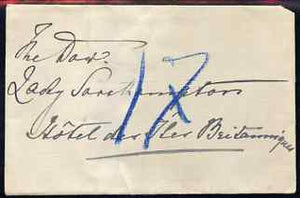 The Dow.
Lady Southampton
Hôtel des Îles Britanniques
17